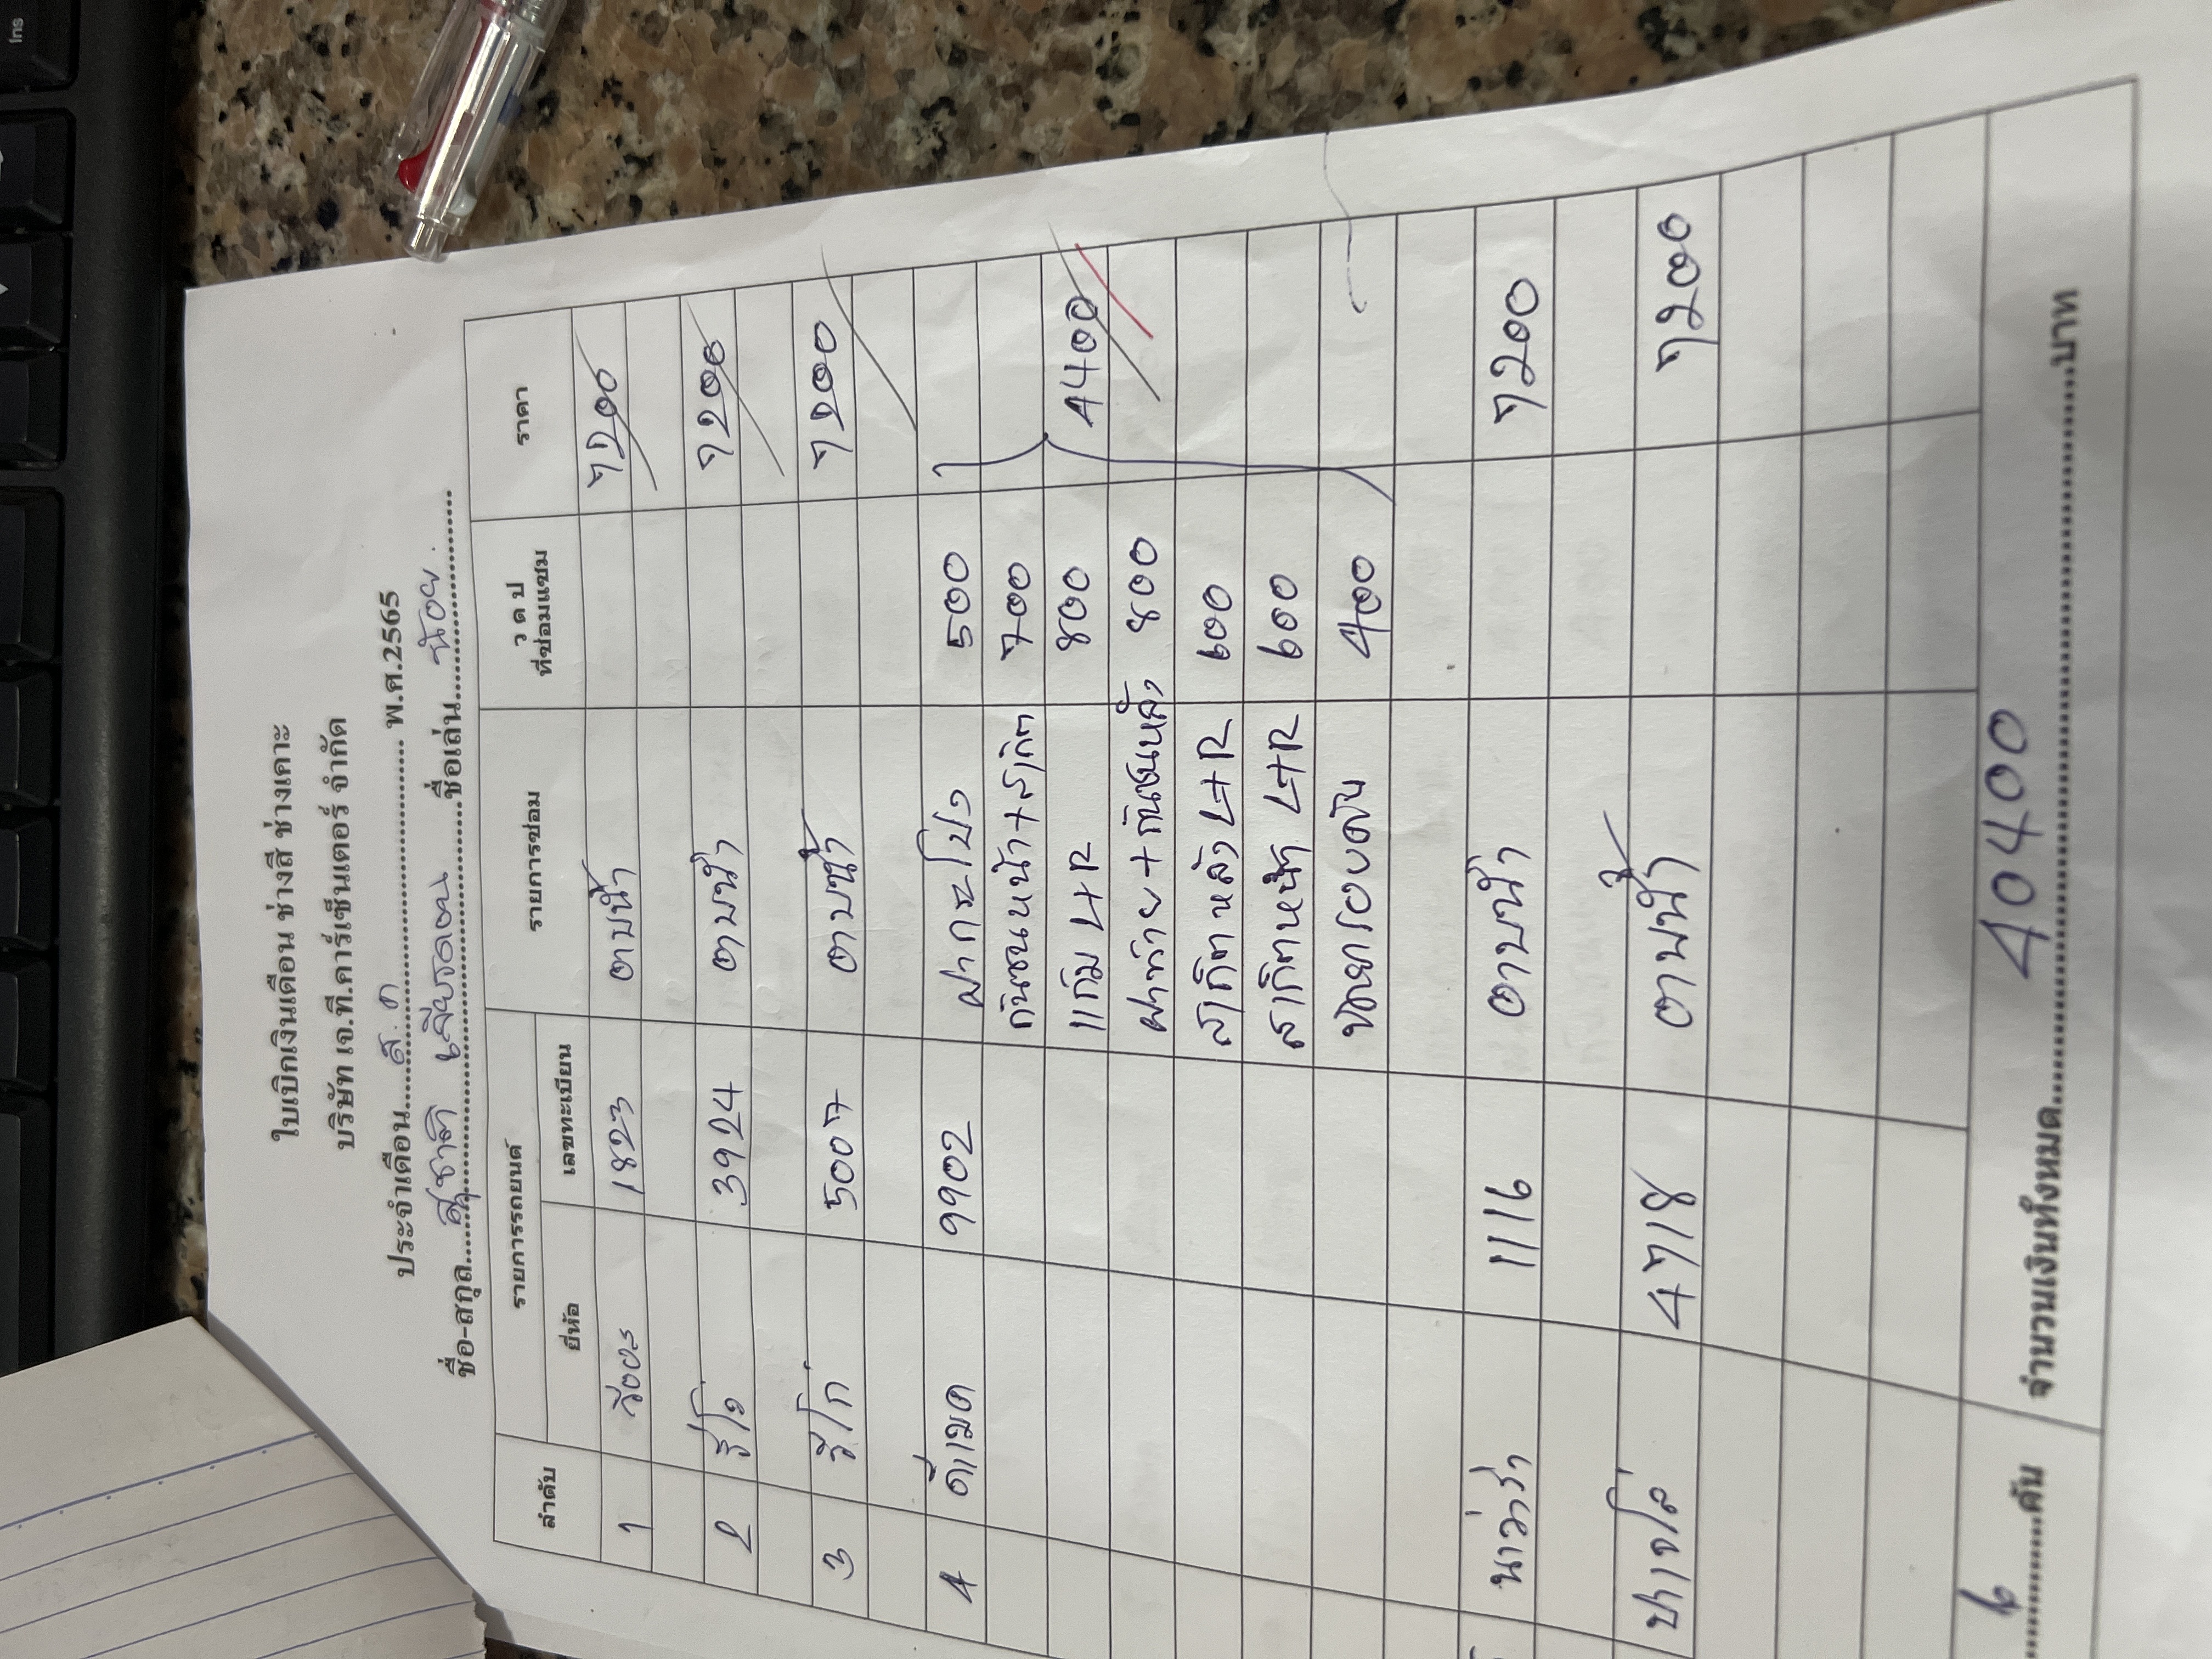 ใบเบิกเงินเดือน ช่างสี ช่างเคาะ
บริษัท เจ.ที.คาร์เซ็นเตอร์ จำกัด
ประจำเดือน.....ส.ค......... พ.ศ.2565
ชื่อ-สกุล....สุชาติ.......ชื่อเล่น....น้อย.....
ลำดับ รายการรถยนต์ รายการซ่อม ว ด ป ที่ซ่อมแซม ราคา
ยี่ห้อ เลขทะเบียน
1 วีออส 1823 ตามน้ำ 7200
2 รีโว่ 3924 ตามน้ำ 7200
3 วีโก้ 5007 ตามน้ำ 7200
4 ดีแมค 9902 ฝากระโปรง 500
กันชนหน้า+สเกิต 700
แก้ม L+R 800 4400
ฝาท้าย+กันชนหลัง 800
สเกิตหลัง L+R 600
สเกิตหน้า L+R 600
400
นาวาร่า 1116 ตามน้ำ 7200
ปาเจโร่ 4718 ตามน้ำ 7200
6.....คัน จำนวนเงินทั้งหมด.....40400.....บาท
Ins